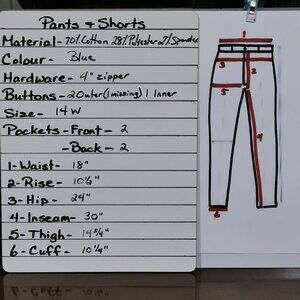 Pants & Shorts
Material - 70% Cotton 28% Polyester 2% Spandex
Colour - Blue
Hardware - 4" zipper
Buttons - 2 Outer (1 missing) 1 Inner
Size - 14 W
Pockets - Front - 2
- Back - 2
1 - Waist - 18"
2 - Rise - 10½"
3 - Hip - 24"
4 - Inseam - 30"
5 - Thigh - 14¾"
6 - Cuff - 10¼"
1
3
2
5
4
6